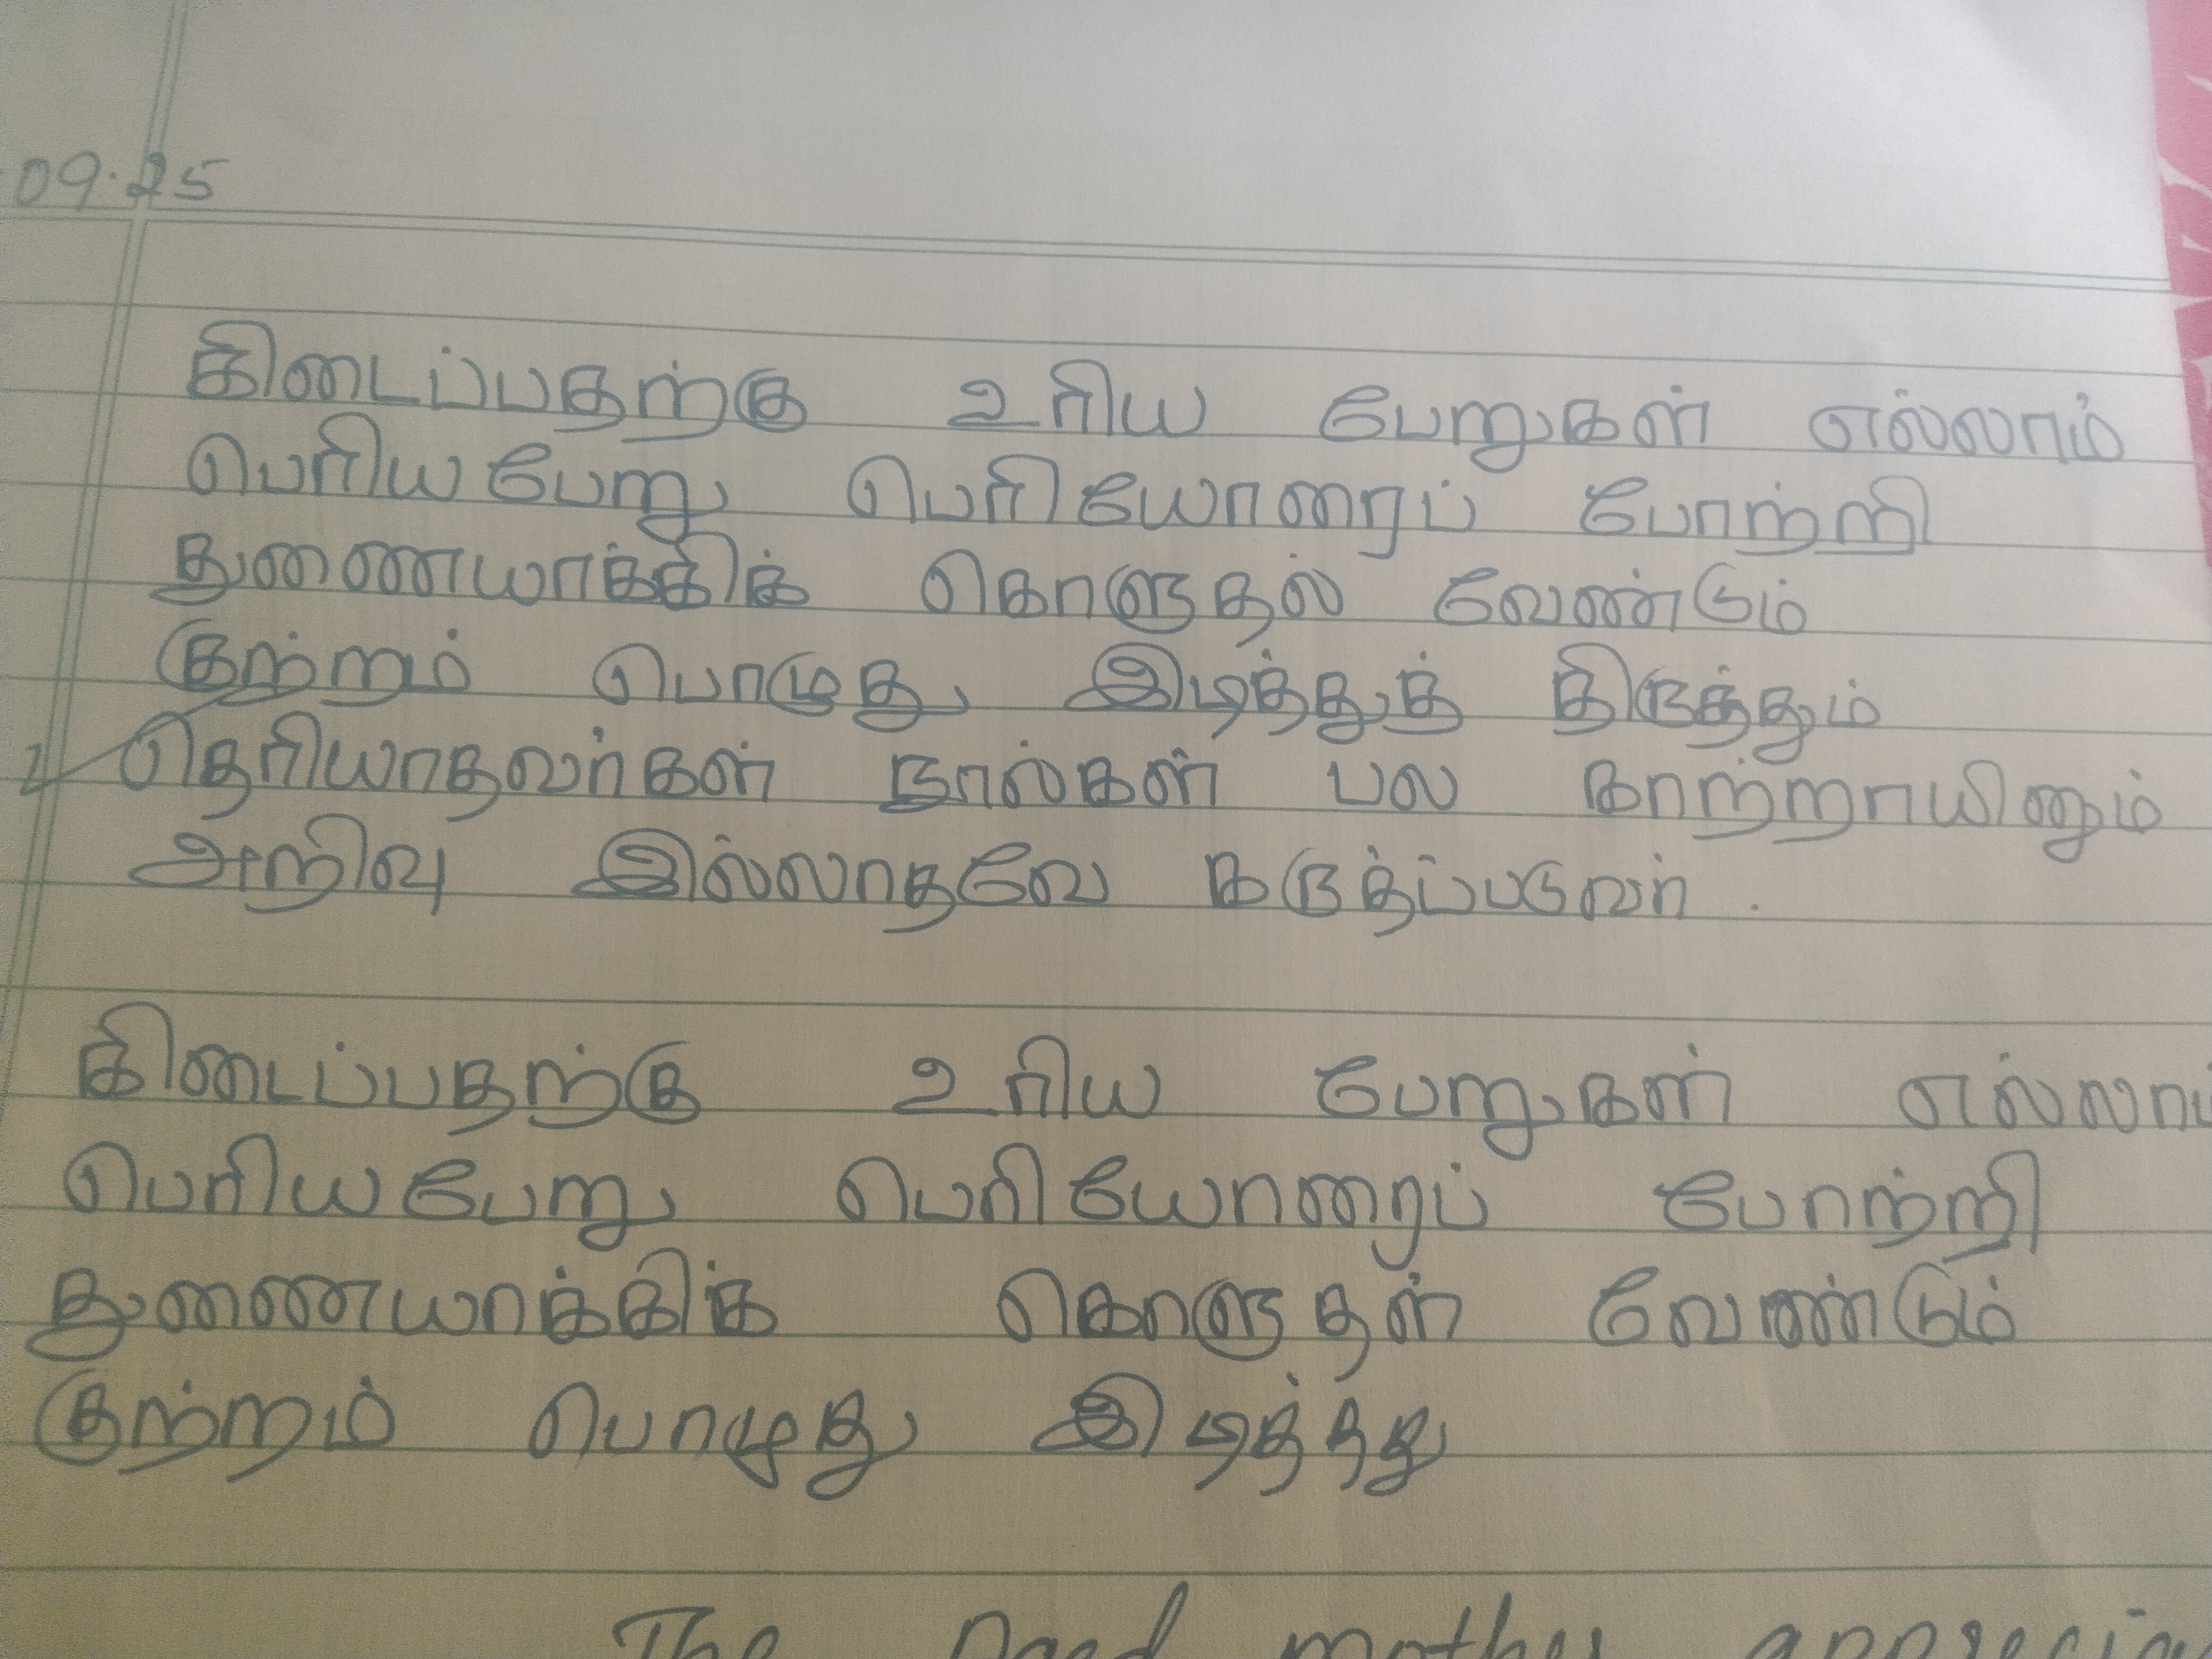 09.25
கிடைப்பதற்கு உரிய பேறுகள் எல்லாம்
பெரிய பேறு பெரியோரைப் போற்றி
துணையாக்கிக் கொளுதல் வேண்டும்
குற்றம் பொழுது இடித்துத் திருத்தும்
தெரியாதவர்கள் நூல்கள் பல காற்றாயினும்
அறிவு இல்லாதவே கருத்ப்படுவர்.
கிடைப்பதற்கு உரிய பேறுகள் எல்லாம்
பெரிய பேறு பெரியோரைப் போற்றி
துணையாக்கிக் கொளுதள் வேண்டும்
குற்றம் பொழுது இடித்தது
The mother